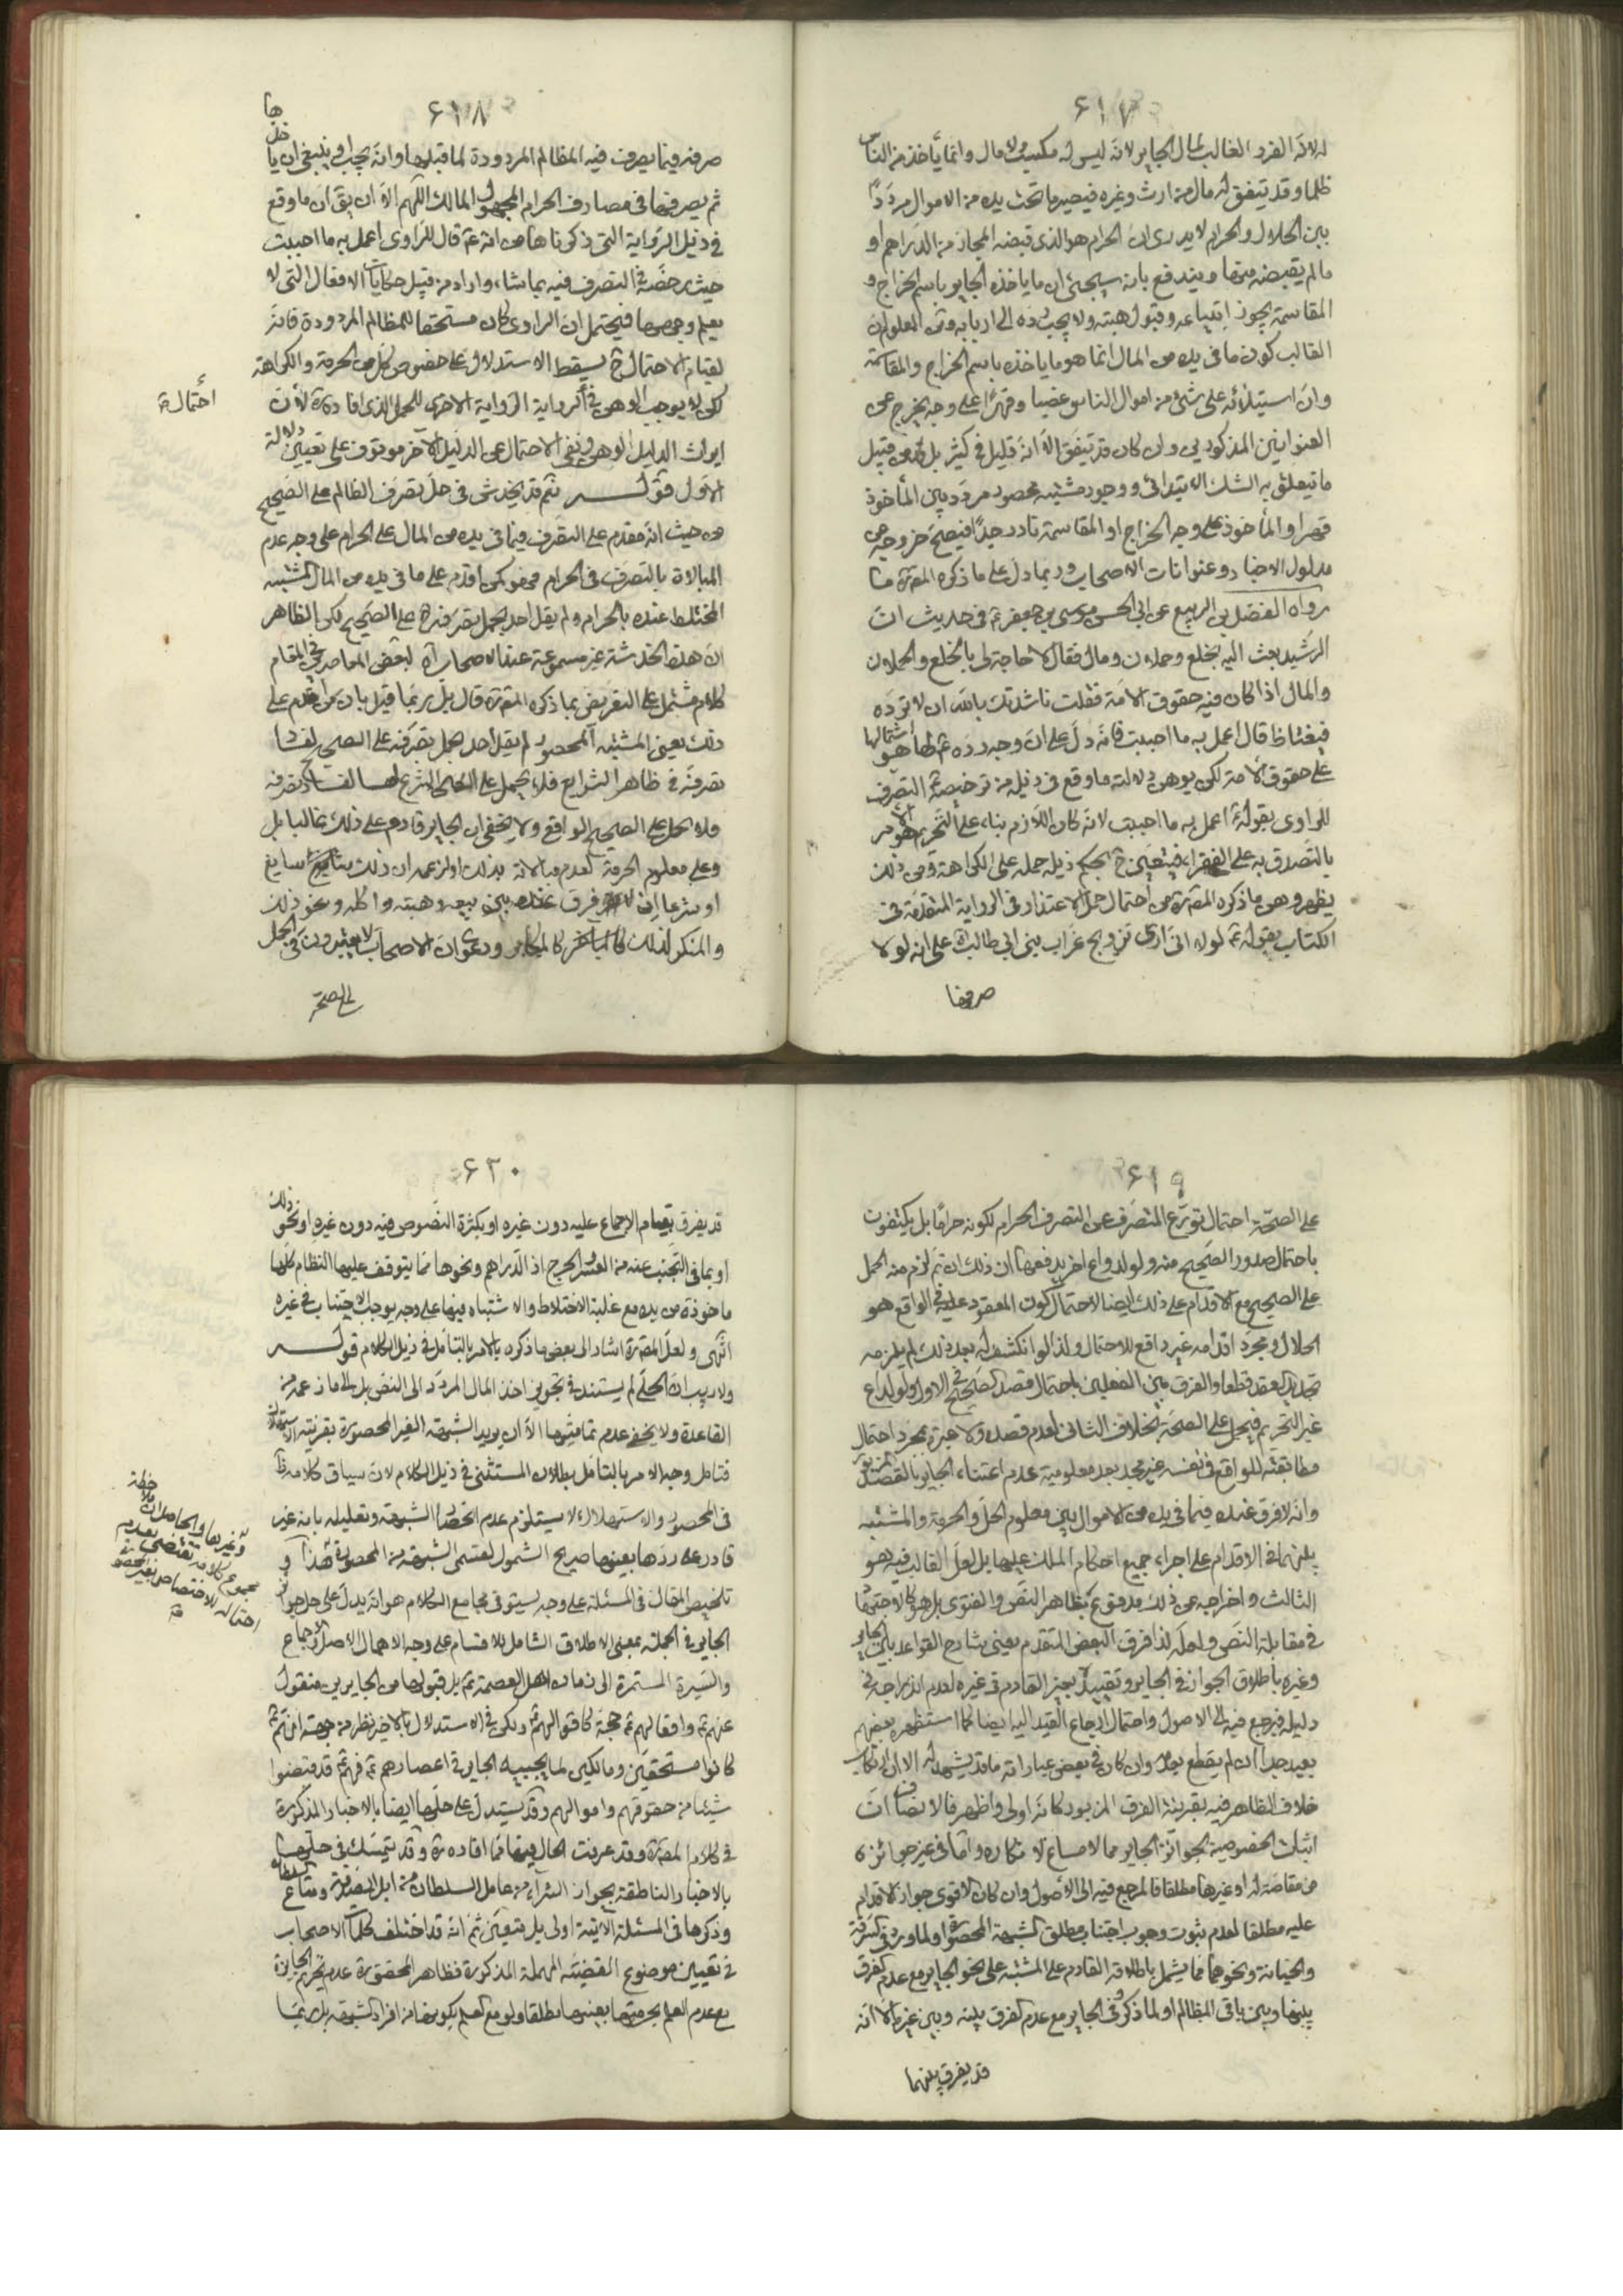 ٦١٧
له لانه الفرد الغالب لمال الجاير لانه ليس له مكسب ولا مال وانما يأخذ من الناس
ظلما وقد يتفق له مال من ارث وغيره فيصير ما تحت يده من الاموال مرددًا
بين الحلال والحرام لا يدرى ان الحرام هو الذى قبضه المجاز من الدراهم او
ما لم يقبضه منها ويندفع بانه سيجئ ان ما ياخذه الجاير باسم الخراج و
المقاسمة يجوز ابتياعه وقبول هبته ولا يجب رده الى اربابه ومن المعلوم ان
الغالب كون ما فى يده من المال انما هو ما ياخذه باسم الخراج والمقاسمة
وان استيلائه على شئ من اموال الناس غصبا وقهرًا على وجه يخرج عن
العنوانين المذكورين وان كان قد يتفق الا انه قليل فى كثير بل من قبيل
ما تيعلق به الشك الابتدائى ووجود مشتبه محصور مردد بين المأخوذ
قهرا والمأخوذ على وجه الخراج او المقاسمة نادر جدًا فيصح خروجه عن
مدلول الاخبار وعنوانات الاصحاب وربما دل على ما ذكره المص ره ما
رواه الفضل بن الربيع عن ابى الحسن موسى بن جعفر ع فى حديث ان
الرشيد بعث اليه بخلع وحملان ومال فقال لا حاجة لى بالخلع والحملان
والمال اذا كان فيه حقوق الامة فقلت ناشدتك بالله ان لا ترده
فيغتاظ قال اعمل به ما احببت فانه دل على ان وجه رده ع لها هو اشتمالها
على حقوق الامة لكن يوهن دلالته ما وقع فى ذيله من ترخيصه ع التصرف
للراوى بقوله ع اعمل به ما احببت لانه كان اللازم بناء على التحريم هو الامر
بالتصدق به على الفقراء فيتعين ح بحكم ذيله حمله على الكراهة ومن ذلك
يظهر وهن ما ذكره المص ره من احتمال حمل الاعتذار فى الرواية المتقدمة فى
الكتاب بقوله ع لولا انى ارى تزويج عزاب بنى ابى طالب على انه لولا
صرفها
٦١٨
صرفه فيما يصرف فيه المظالم المردودة لما قبلها وانه يجب او ينبغى ان يأخذها
ثم يصرفها فى مصارف الحرام المجهول المالك اللهم الا ان يق ان ما وقع
فى ذيل الرواية التى ذكرناها من انه ع قال للراوى اعمل به ما احببت
حيث رخصه فى التصرف فيه بما شاء واراد من قبيل حكايات الافعال التى لا
يعلم وجوهها فيحتمل ان الراوى كان مستحقا للمظالم المردودة فانه
لقيام الاحتمال ح يسقط الاستدلال على خصوص كل من الحرمة والكراهة
لكن لا يوجب الوهن فى الرواية الاخرى للحمل الذى افاده ره لان
احتماله
ايراث الدليل الوهن ونفى الاحتمال عن الدليل الاخر موقوف على تعيين دلالة
الاول قوله ثم قد يخدش فى حمل تصرف الظالم على الصحيح
من حيث انه مقدم على التصرف فيما فى يده من المال على الحرام على وجه عدم
المبالاة بالتصرف فى الحرام فهو كمن اقدم على ما فى يده من المال المشتبه
المختلط عنده بالحرام ولم يقل احد بحمل تصرفه ح على الصحيح لكن الظاهر
ان هذه الخدشة غير مسموعة عند الاصحاب لبعض المعاصرين فى المقام
كلام مشتمل على التعريض بما ذكره المص ره قال بل ربما قيل بان من اقدم على
ذلك يعنى المشتبه المحصور لم يقل احد بحمل تصرفه على الصحيح لفساد
تصرفه فى ظاهر الشرايع فلا يحمل على الصحيح
فلا يحمل على الصحيح الواقعى ولا يخفى ان الجاير قادم على ذلك غالبا بل
وعلى معلوم الحرمة لعدم مبالاته بذلك او لزعمه ان ذلك سايغ
او شرعا اذ لا فرق عنده بين بيعه وهبته واكله ونحو ذلك
والمنكر لذلك كالمكابر ودعوى ان الاصحاب لا يعتبرون فى الحمل
على الصحة
٦١٩
على الصحة احتمال تورع المتصرف عن التصرف الحرام لكونه حرامًا بل يكتفون
باحتمال صدور الصحيح منه ولو لدواع اخر يدفعها ان ذلك ان تم لزم منه الحمل
على الصحيح مع الاقدام على ذلك ايضا لاحتمال كون المعقود عليه فى الواقع هو
الحلال ومجرد اقدامه غير دافع للاحتمال ولذا لو انكشف له بعد ذلك لم يلزمه
تجديد العقد قطعا والفرق بين الفعلين باحتمال قصد الصحيح فى الاول ولو لداع
غير التحريم فيحمل على الصحة بخلاف الثانى لعدم قصده ولا عبرة بمجرد احتمال
مطابقته للواقع فى نفسه غير مجد بعد معلومية عدم اعتناء الجاير بالقصد المزبور
وانه لا فرق عنده فيما فى يده من الاموال بين معلوم الحل والحرمة والمشتبه
بينهما فى الاقدام على اجراء جميع احكام الملك عليها بل لعل الغالب فيه هو
الثالث واخراجه عن ذلك مدفوع بظاهر النص والفتوى بل هو كالاجتهاد
فى مقابلة النص ولعله لذا فرق البعض المتقدم يعنى شارح القواعد بين الجاير
وغيره باطلاق الجواز فى الجاير وتقييده بغير القادم فى غيره لعدم اندراجه فى
دليله فيرجع فيه الى الاصول واحتمال ارجاع القيد اليه ايضا كما استظهره بعضهم
بعيد جدا ان لم يقطع بعدمه وان كان فى بعض عباراته ما قد يشهد له الا ان ارتكاب
خلاف الظاهر فيه بقرينة الفرق المزبور كانه اولى واظهر فالانصاف ان
اثبات الخصوصية لجوائز الجاير مما لا مساغ لانكاره واما فى غير جوائزه
من مقاصة له او غيرها مطلقا فالمرجع فيه الى الاصول وان كان الاقوى جواز الاقدام
عليه مطلقا لعدم ثبوت وجوب اجتناب مطلق الشبهة المحصورة او لما ورد فى السرقة
والخيانة ونحوهما مما يشمل باطلاقه القادم على المشتبه على نحو الجاير مع عدم الفرق
بينها وبين باقى المظالم او لما ذكروه فى الجاير مع عدم الفرق بينه وبين غيره الا انه
قد يفرق بينهما
٦٢٠
قد يفرق بقيام الاجماع عليه دون غيره او بكثرة النصوص فيه دون غيره او نحو ذلك
او بما فى التجنب عنه من العسر والحرج اذ الدراهم ونحوها مما يتوقف عليها النظام كلها
ماخوذة من يده مع غلبة الاختلاط والاشتباه فيها على وجه يوجب الاجتناب فى غيره
انتهى ولعل المص ره اشار الى بعض ما ذكره بالامر بالتامل فى ذيل الكلام قوله
ولا ريب ان الحلى لم يستند فى تجويز اخذ المال المردد الى النص بل الى ما زعمه من
القاعدة ولا يخفى عدم تماميتها الا ان يريد الشبهة الغير المحصورة بقرينة الاستهلاك
فتامل وجه الامر بالتامل بطلان المستثنى فى ذيل الكلام لان سياق كلامه
فى المحصور والاستهلاك لا يستلزم عدم انحصار الشبهة وتعليله بانه غير
قادر على ردها بعينها صريح الشمول لقسمى الشبهة من المحصورة هذا و
وغيرها والحاصل ان ملاحظة
مجموع كلامه تقتضى بعدم
احتماله الاختصاص بغير المحصورة
تلخيص المقال فى المسئلة على وجه يستوفى مجامع الكلام هو انه يدل على حل جوائز
الجاير فى الجملة بمعنى الاطلاق الشامل للاقسام على وجه الاهمال الاصل والاجماع
والسيرة المستمرة الى زمان اهل العصمة ع بل قبولها من الجايرين منقول
عنهم ع وافعالهم ع حجة كاقوالهم ع ولكن فى الاستدلال بالاخير نظر من جهة انهم ع
كانوا مستحقين ومالكين لما يجبيه الجاير فى اعصارهم ع فهم ع قد قبضوا
شيئا من حقوقهم واموالهم وقد يستدل على حلها ايضا بالاخبار المذكورة
فى كلام المص ره وقد عرفت الحال فيها مما افاده ره وقد يتمسك فى حلها
بالاخبار الناطقة بجواز الشراء من عامل السلطان من ابل الصدقة ومتاع السلطان
وذكرها فى المسئلة الاتية اولى بل يتعين ثم انه قد اختلف كلمات الاصحاب
فى تعيين موضوع القضية المهملة المذكورة فظاهر المحقق ره عدم تحريم الجايزة
مع عدم العلم بحرمتها بعينها مطلقا ولو مع العلم بكونها من افراد الشبهة بل ربما